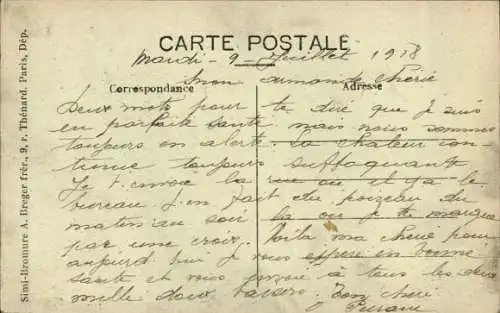 CARTE POSTALE
Mardi - 9 - Juillet 1918
mon amande chérie
Correspondance Adresse
Deux mots pour te dire que je suis
en parfaite santé mais nous sommes
toujours en alerte. La chaleur con-
tinue toujours suffoquante
Je t'envoie la rue ou il y a le
bureau j'en fait du
matin au soir la ou je te marque
par une croix. Voila ma chérie pour
aujourd'hui je vous espère en bonne
santé et vous envoie à tous les deux
mille doux baisers. Ton chéri
Simi-Bromure A. Breger frèr., 9, r. Thénard. Paris, Dép.